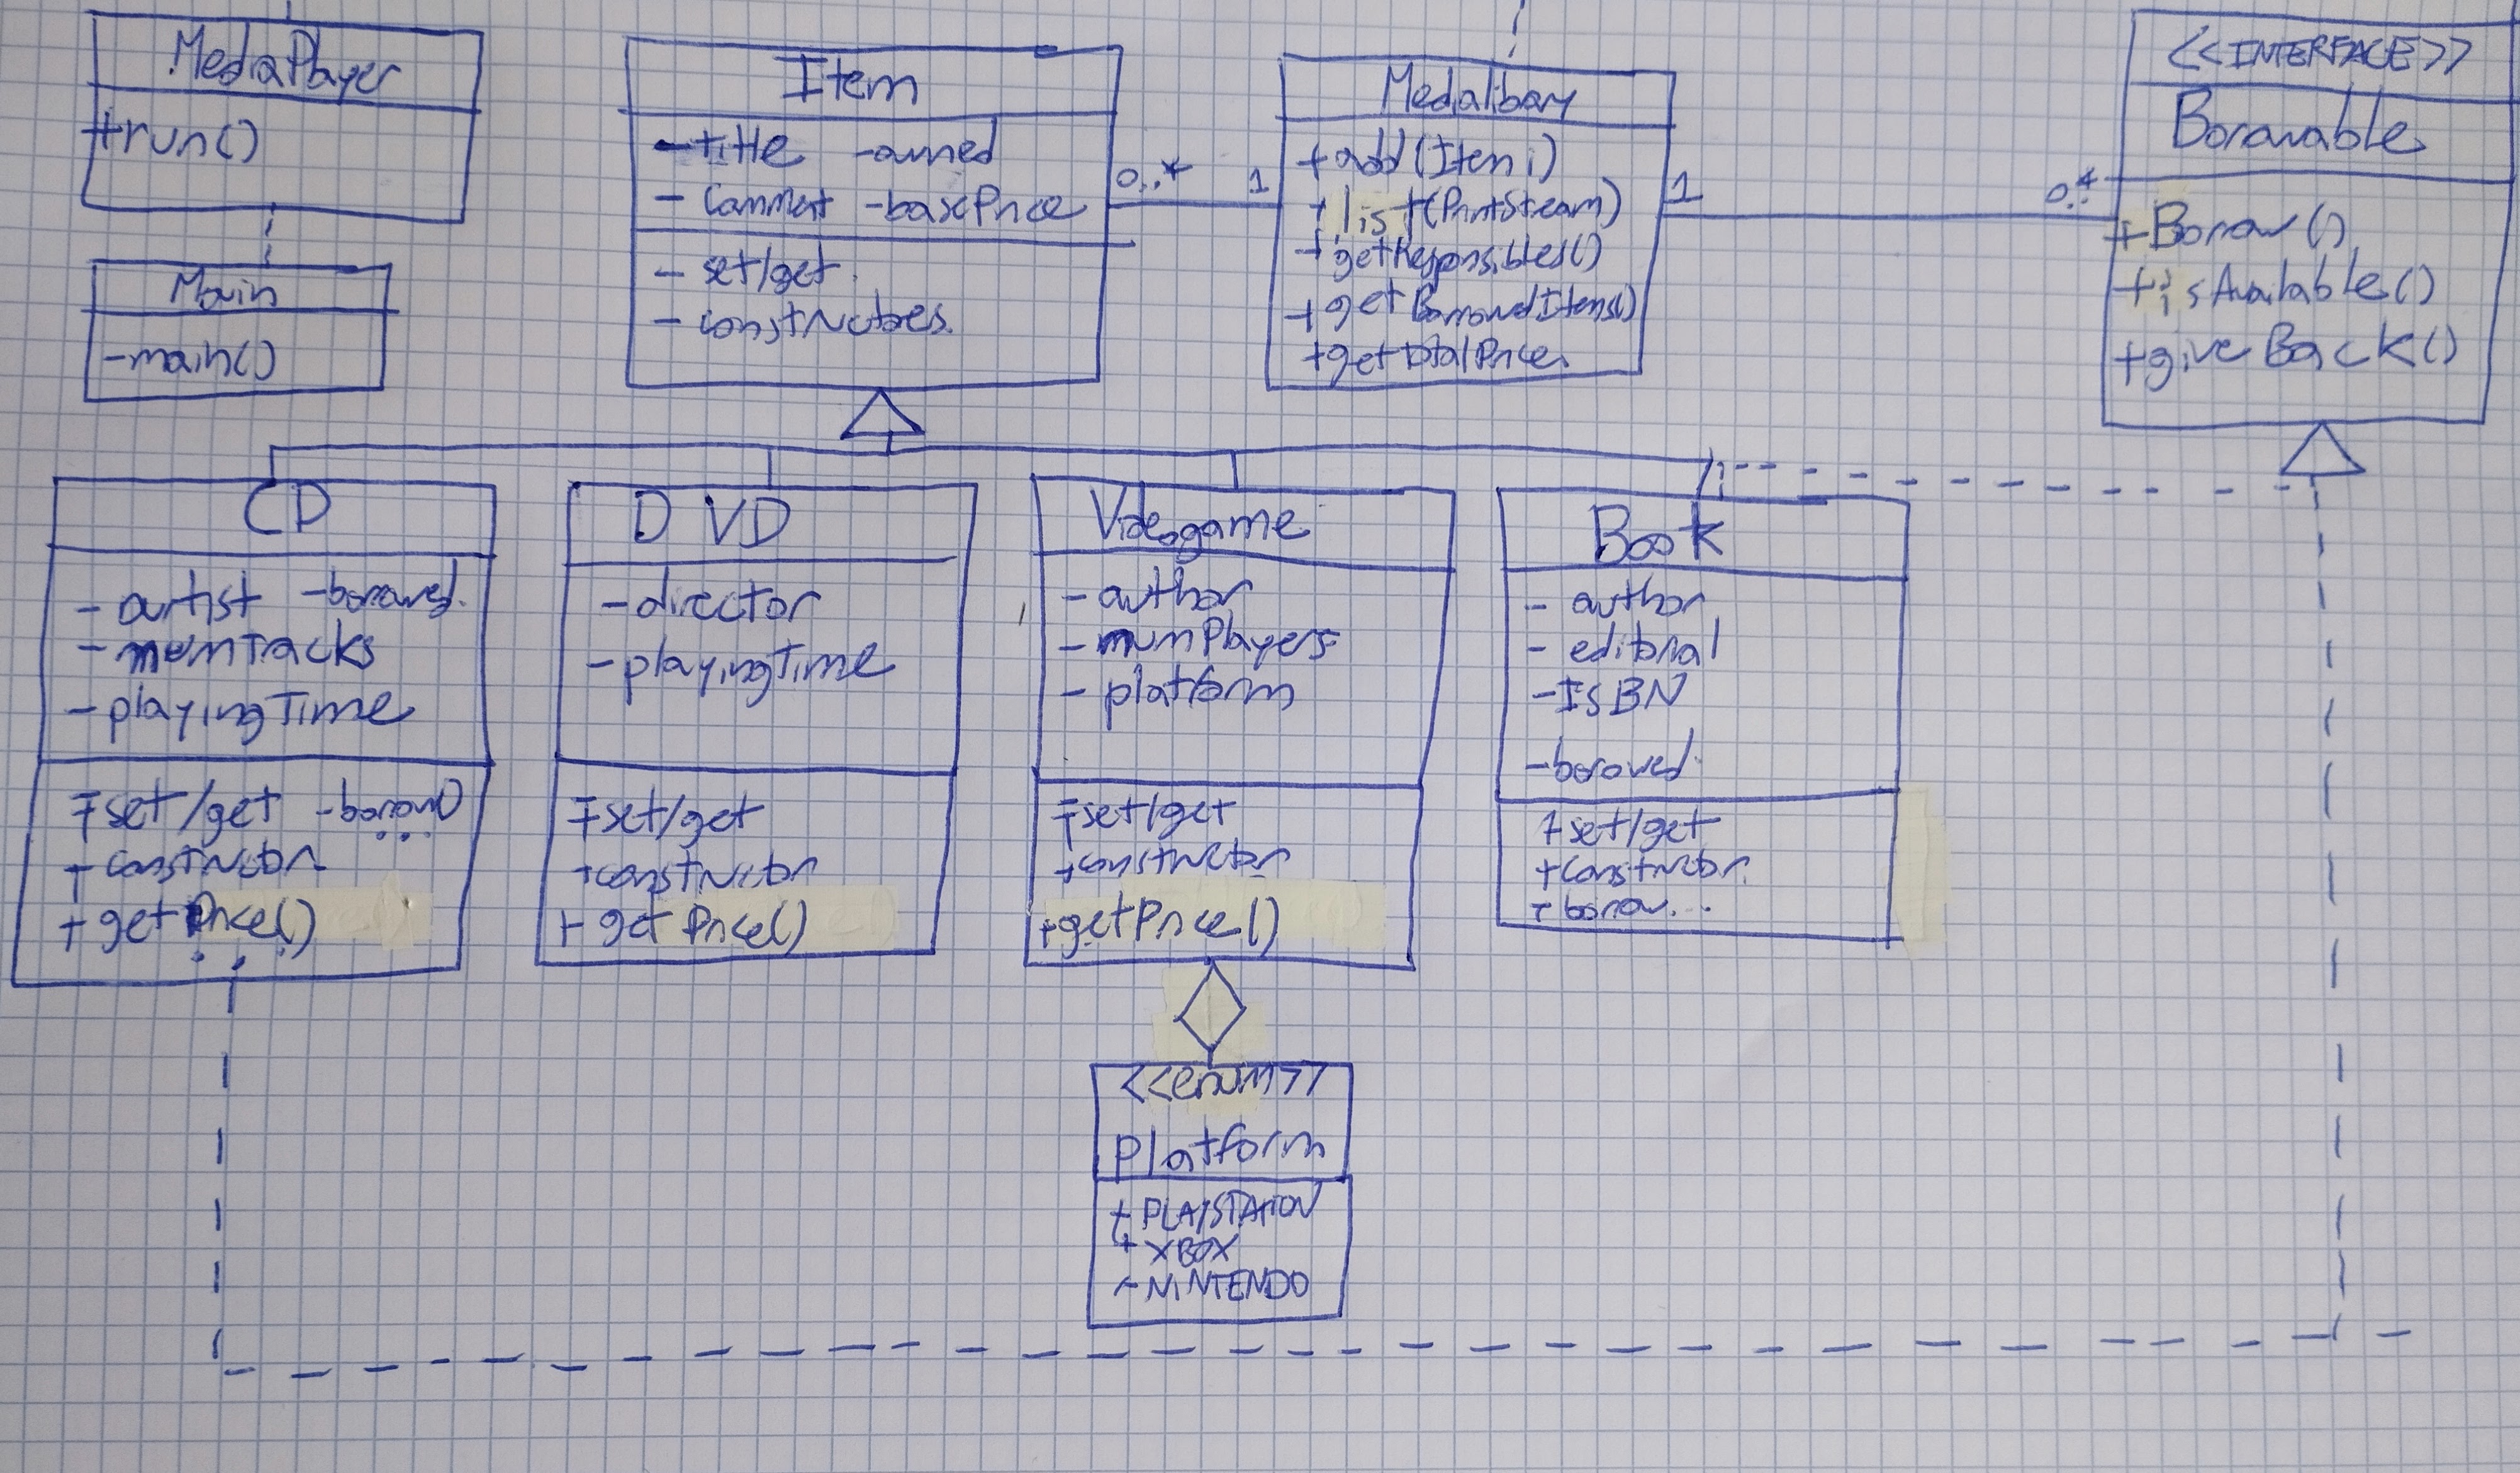 MediaPlayer
+run()
Main
-main()
Item
-title -owned
- comment -basePrice
- set/get
- constructores.
0..*
1
Medialibary
+ add(Item i)
+ list(PrintStream)
+ getResponsibles()
+ getBorrowedItems()
+getTotalPrice.
1
0..*
<<INTERFACE>>
Borowable
+Borrow()
+isAvailable()
+giveBack()
CD
- artist -borowed.
- numTracks
- playingTime
+set/get -borow()
+ constructor
+ getPrice()
...
DVD
-director
-playingTime
+set/get
+constructor
+ getPrice()
Videogame
- author
- numPlayers
- platform
+set/get
+constructor
+getPrice()
Book
- author
- editorial
-ISBN
-borowed.
+set/get
+constructor.
+borow...
<<enum>>
Platform
+ PLAYSTATION
+ XBOX
- NINTENDO